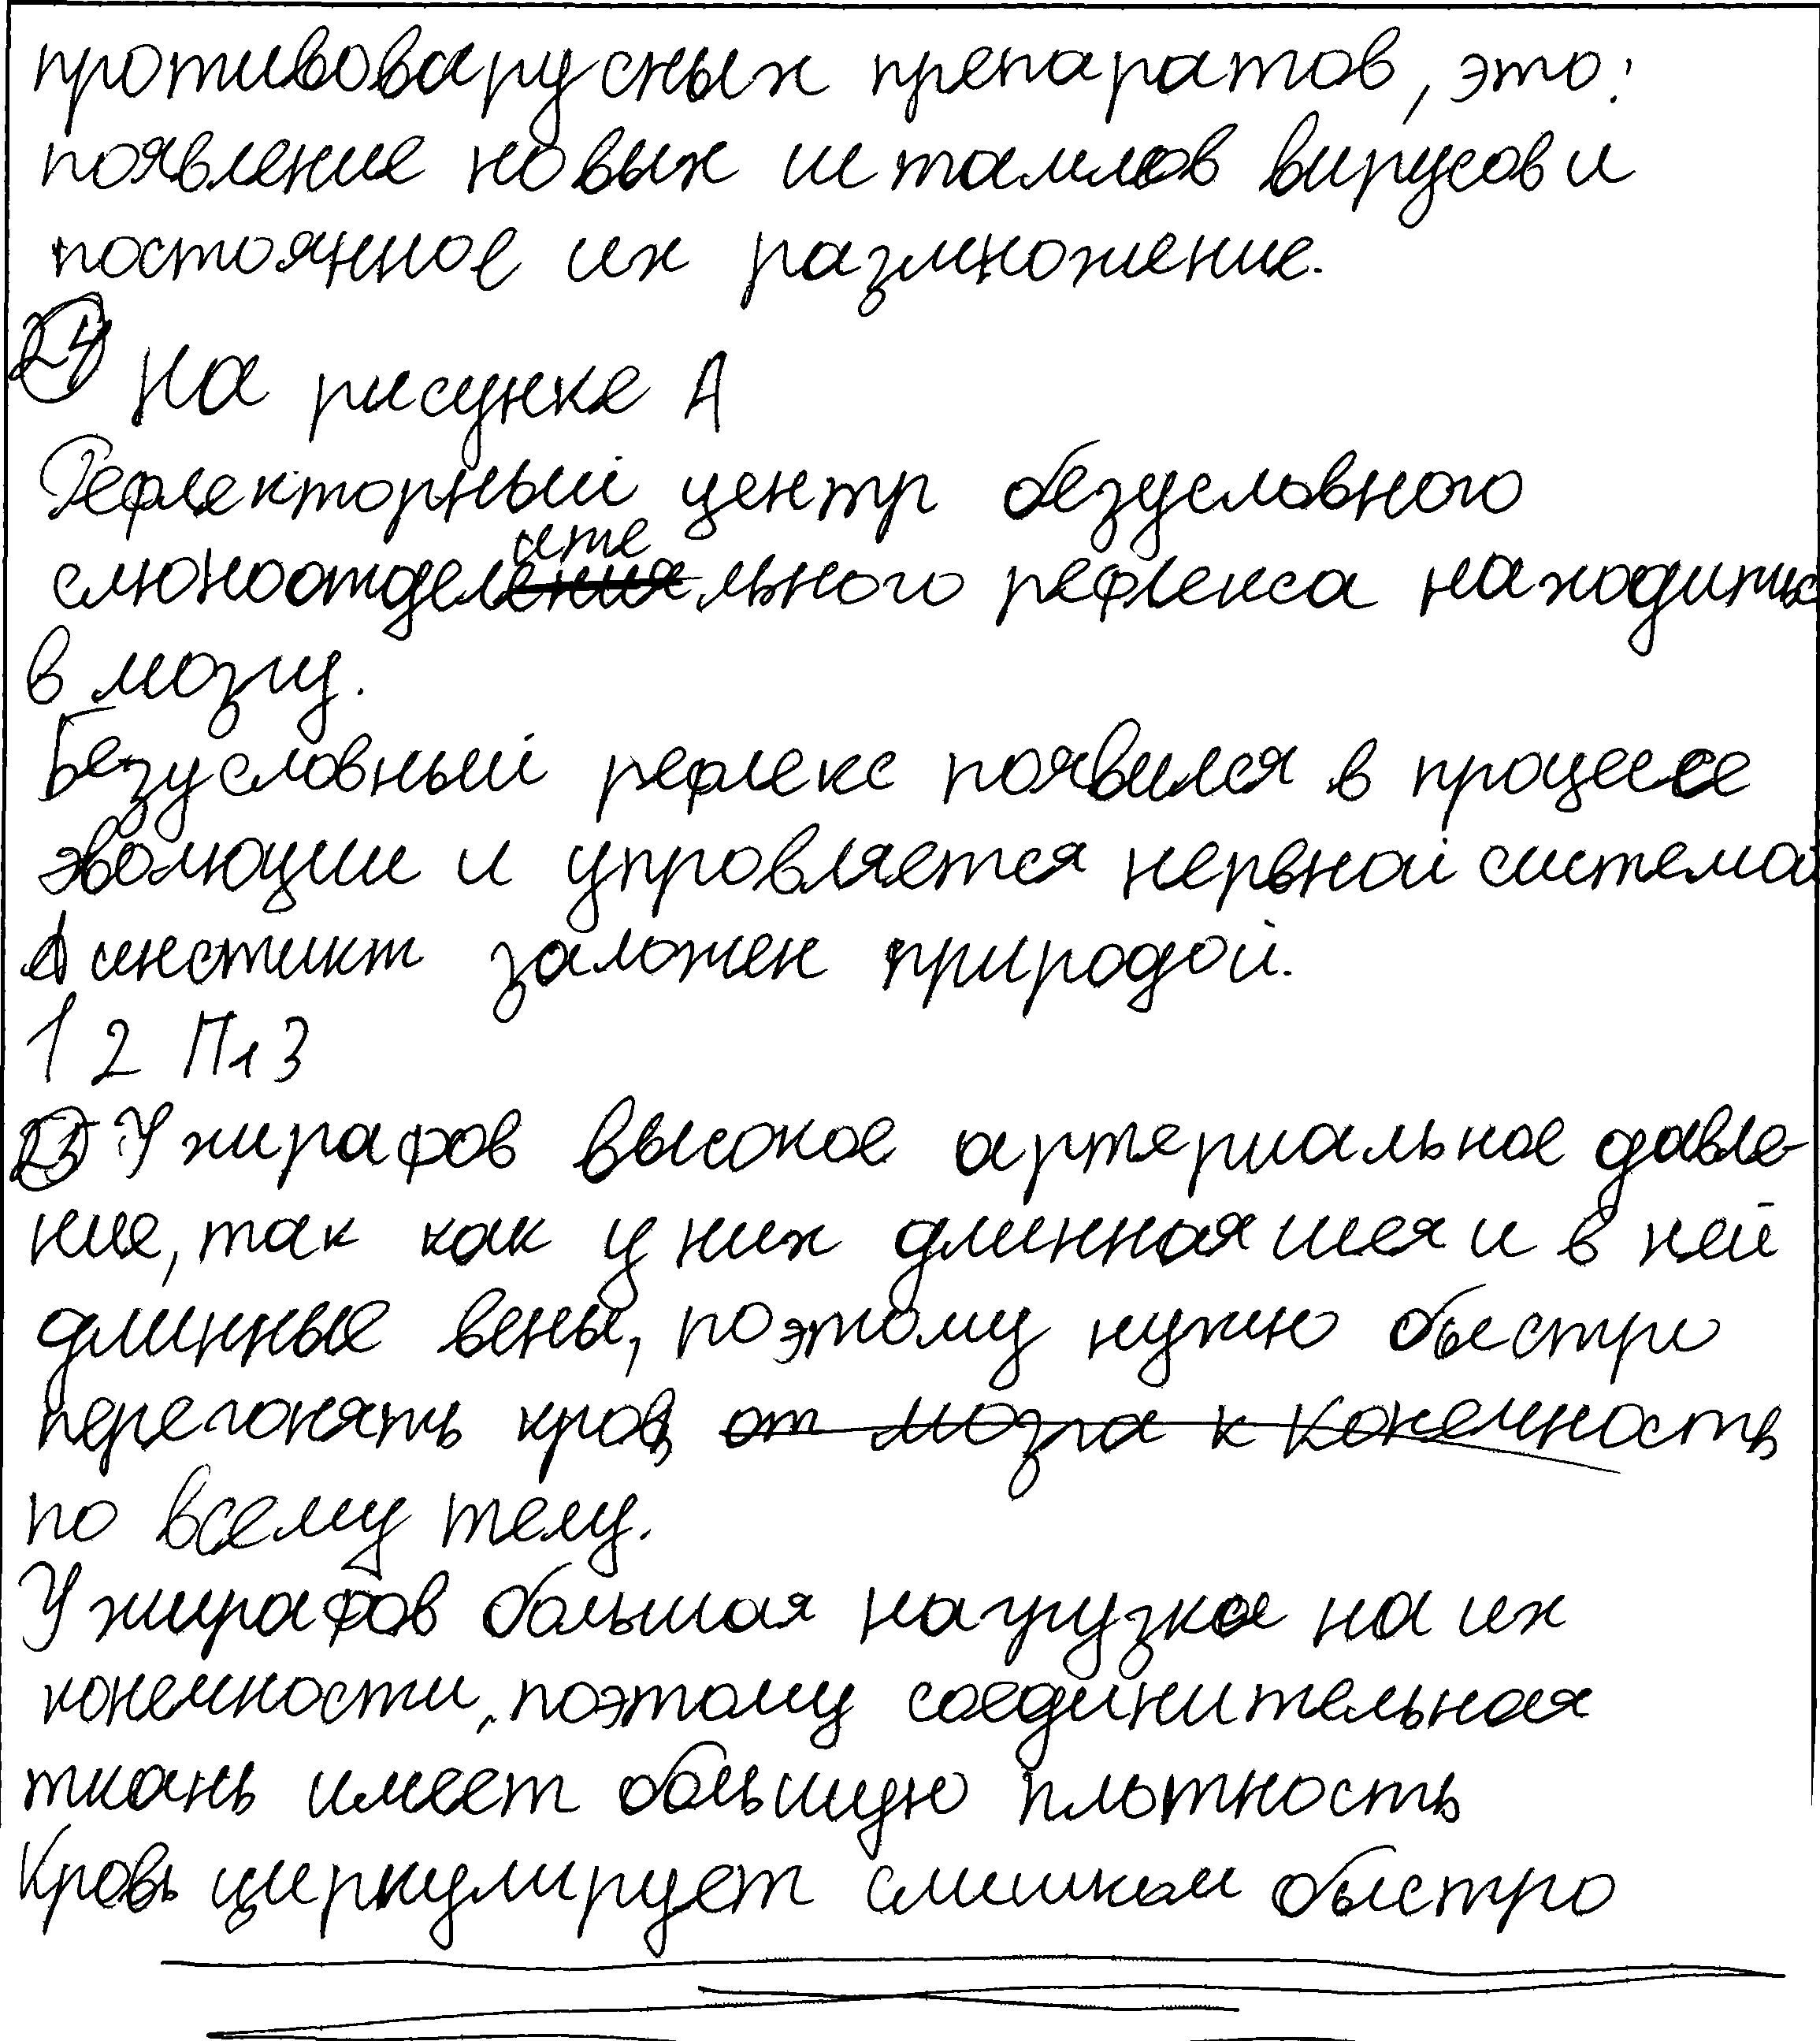 противовирусных препаратов, это:
появление новых штаммов вирусов и
постоянное их размножение.
24 На рисунке А
Рефлекторный центр безусловного
слюноотделительного рефлекса находиться
в мозгу.
Безусловный рефлекс появился в процессе
эволюции и упровляется нервной системой
А инстинкт заложен природой.
1 2 П1 3
25 У жирафов высокое артериальное давле-
ние, так как у них длинная шея и в ней
длинные вены, поэтому нужно быстро
перегонять кровь от мозга к конечность
по всему телу.
У жирафов большая нагрузка на их
конечности, поэтому соединительная
ткань имеет большую плотность
Кровь циркулирует слишком быстро